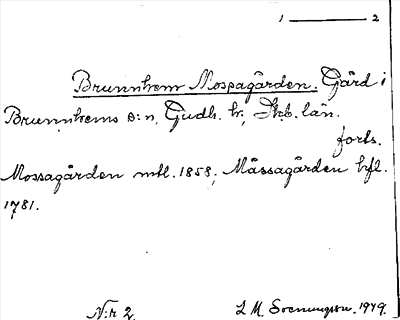 1 — 2
Brunnhem Mossagården. Gård i
Brunnhems s:n, Gudh. hr, Skb. län.
forts.
Mossagården mtl. 1858; Mässagården hfl.
1781.
N:r 2. L M. Svenungson. 1979.